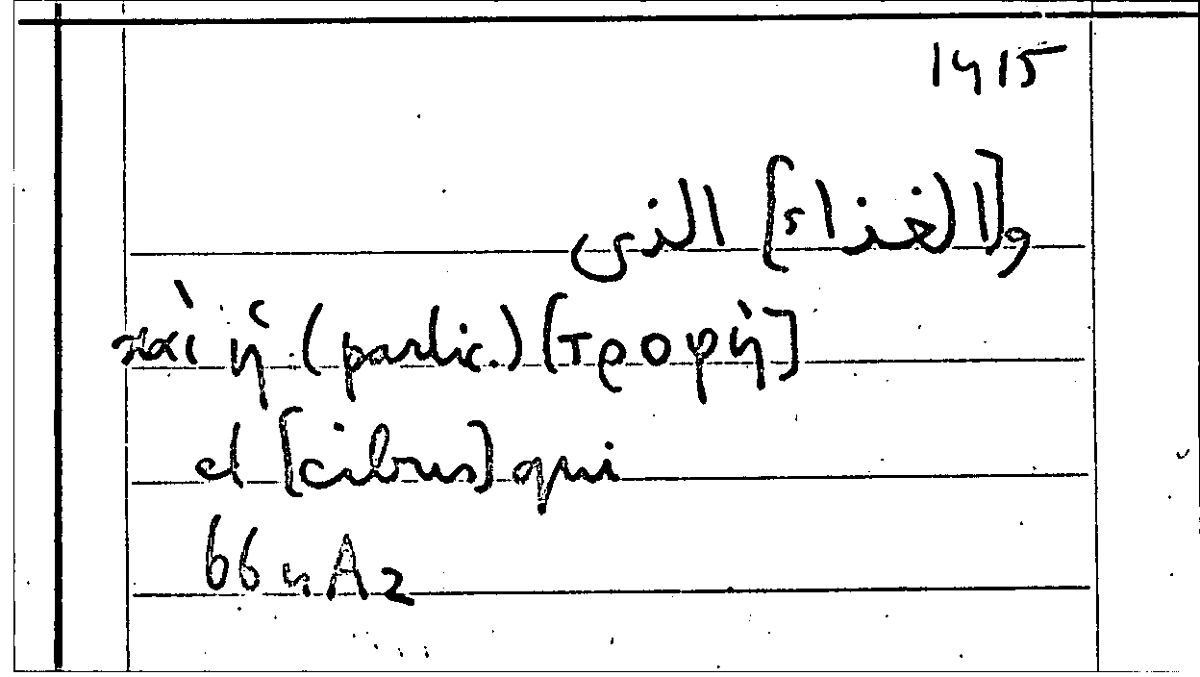 1415
و[الغذاء] الذى
καὶ ἡ (partic.) [τροφή]
et [cibus] qui
664A2